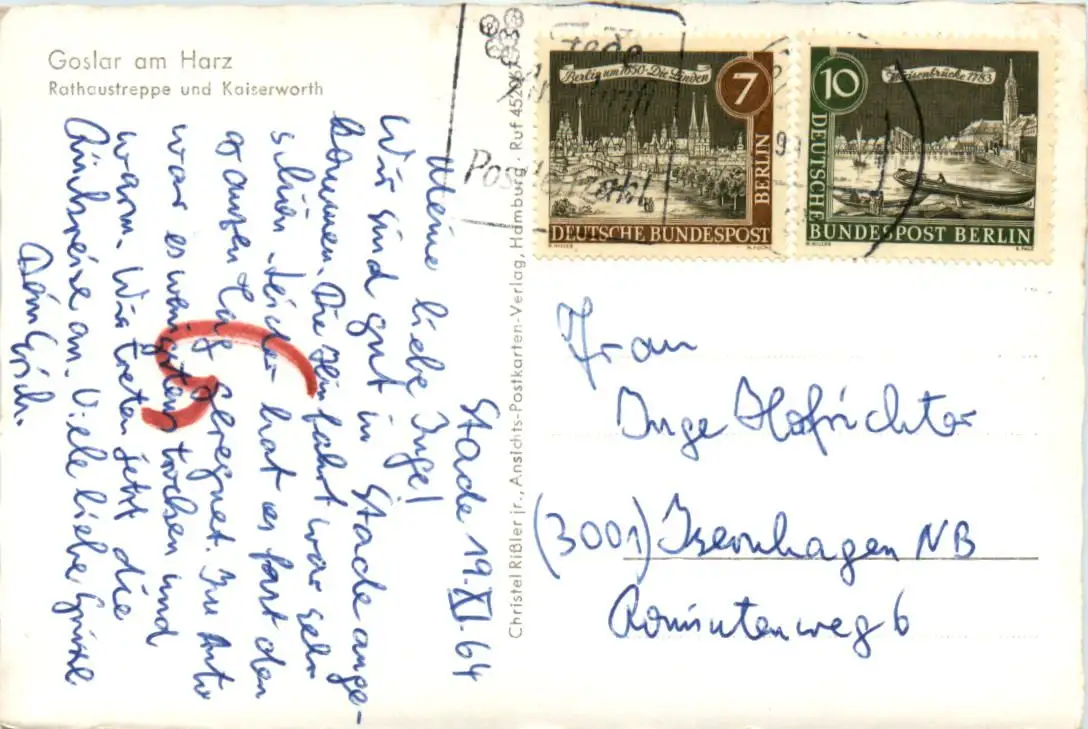 Goslar am Harz
Rathaustreppe und Kaiserworth
Stade 19.XI.64
Meine liebe Inge!
Wir sind gut in Stade ange-
kommen. Die Hinfahrt war sehr
schön. Leider hat es fast den
ganzen Tag geregnet. Im Auto
war es wenigstens trocken und
warm. Wir treten jetzt die
Rückreise an. Viele liebe Grüsse
Dein
Christel Rißler jr., Ansichts-Postkarten-Verlag, Hamburg · Ruf 452
Berlin um 1650 · Die Linden
7
BERLIN
DEUTSCHE BUNDESPOST
Waisenbrücke 1783
10
DEUTSCHE
BUNDESPOST BERLIN
Frau
Inge Hofrichter
(3001) Isernhagen NB
Romintenweg 6